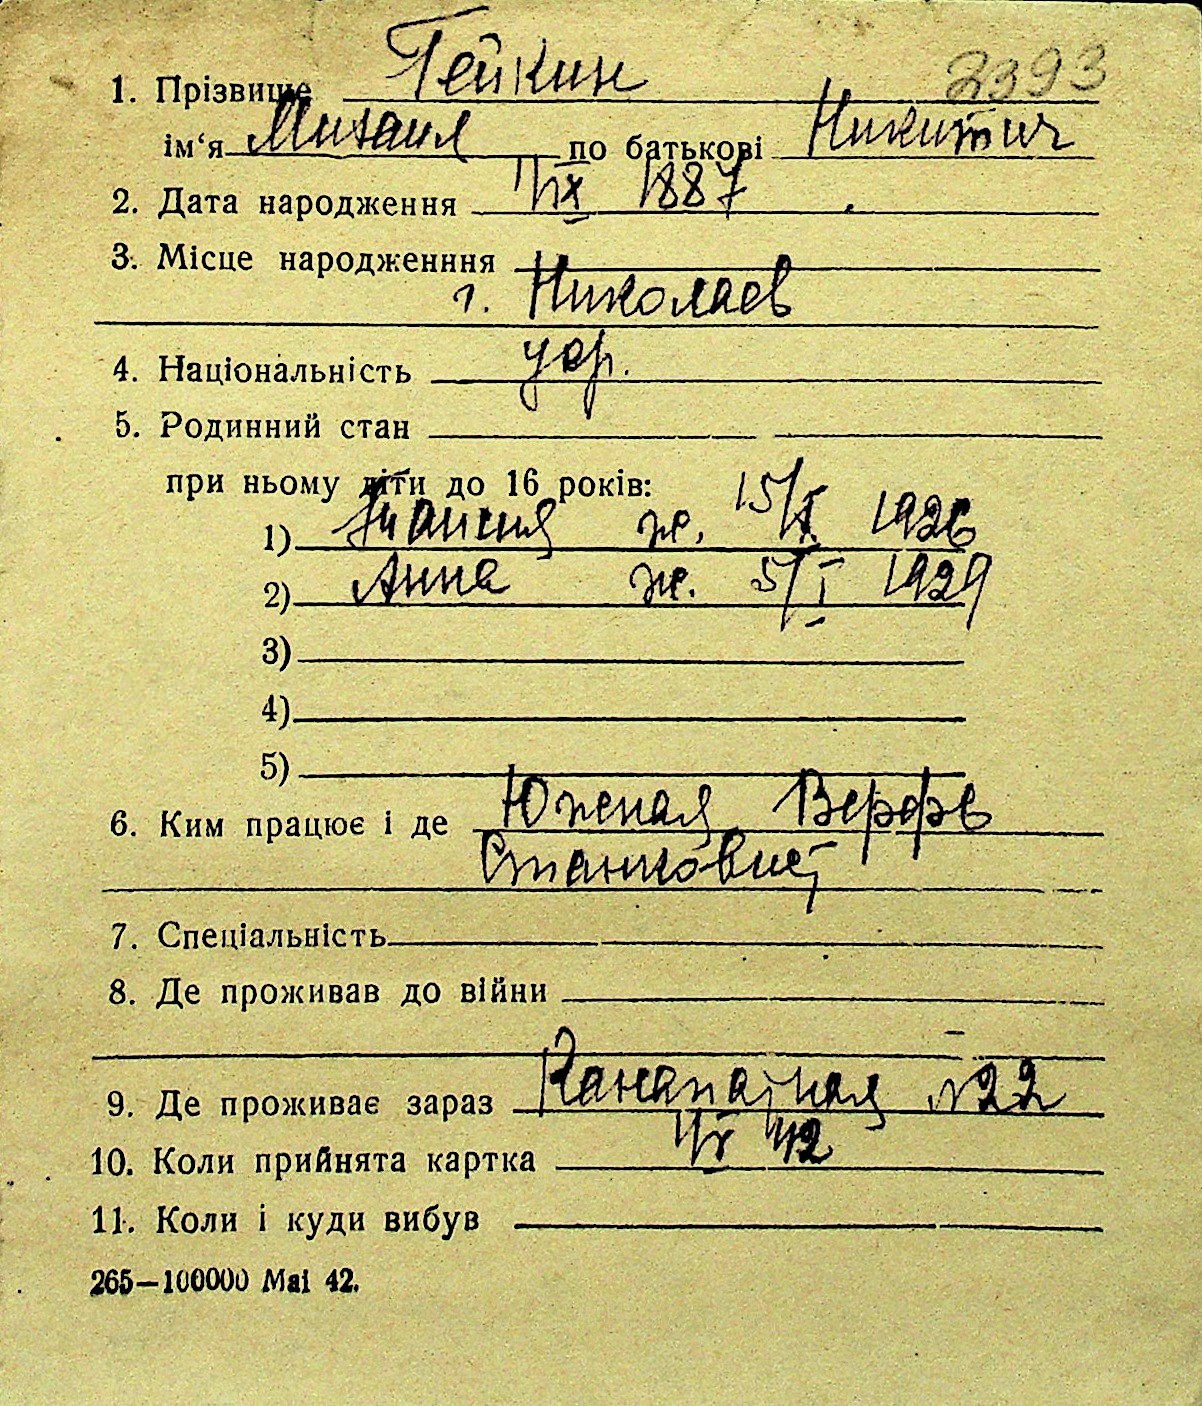 2393
1. Прізвище Гейкин
ім‘я Михаил по батькові Никитич
2. Дата народження 1/IX 1887
3. Місце народженння
г. Николаев
4. Національність укр.
5. Родинний стан
при ньому діти до 16 років:
1) ж. 15/X 1926
2) Анна ж. 5/I 1929
3)
4)
5)
6. Ким працює і де Южная Верфь
7. Спеціальність
8. Де проживав до війни
9. Де проживає зараз Канатная №22
10. Коли прийнята картка 42
11. Коли і куди вибув
265—100000 Mai 42.